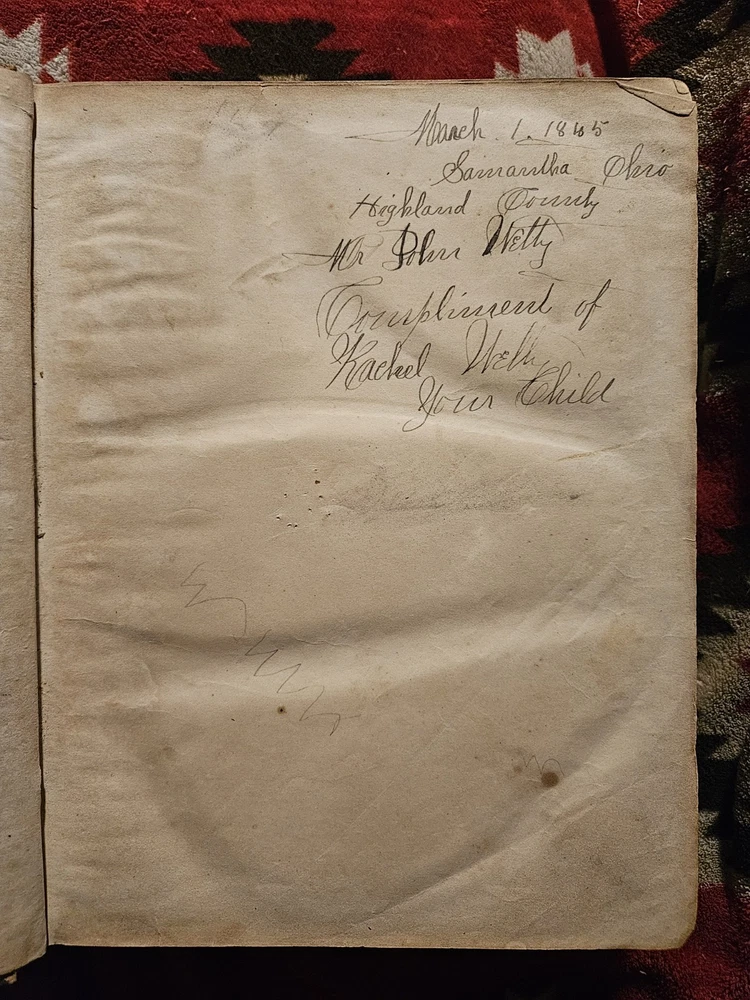 March 1. 1865
Samantha Ohio
Highland County
Mr John Welty
Compliment of
Rachel Welty
Your Child